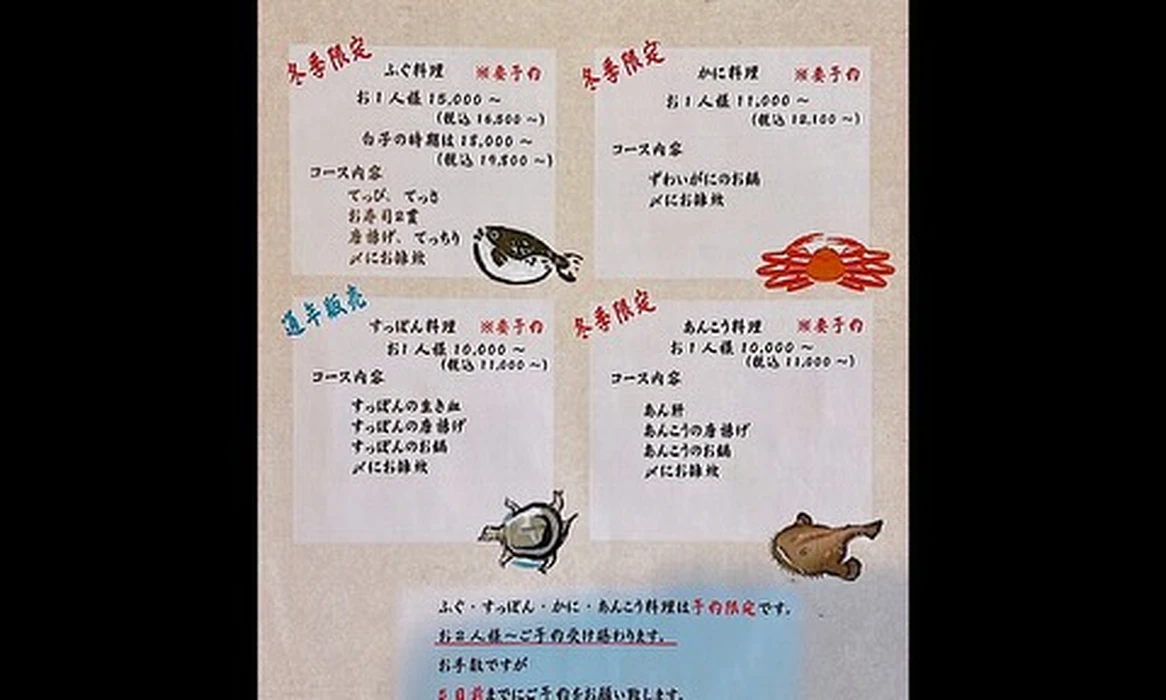 冬季限定
ふぐ料理 ※要予約
お1人様 15,000 ~
(税込 16,500 ~)
白子の時期は 18,000 ~
(税込 19,800 ~)
コース内容
てっぴ、てっさ
お寿司2貫
唐揚げ、てっちり
〆にお雑炊
冬季限定
かに料理 ※要予約
お1人様 11,000 ~
(税込 12,100 ~)
コース内容
ずわいがにのお鍋
〆にお雑炊
通年販売
すっぽん料理 ※要予約
お1人様 10,000 ~
(税込 11,000 ~)
コース内容
すっぽんの生き血
すっぽんの唐揚げ
すっぽんのお鍋
〆にお雑炊
冬季限定
あんこう料理 ※要予約
お1人様 10,000 ~
(税込 11,000 ~)
コース内容
あん肝
あんこうの唐揚げ
あんこうのお鍋
〆にお雑炊
ふぐ・すっぽん・かに・あんこう料理は予約限定です。
お2人様~ご予約受け賜わります。
お手数ですが
日前までにご予約をお願い致します。